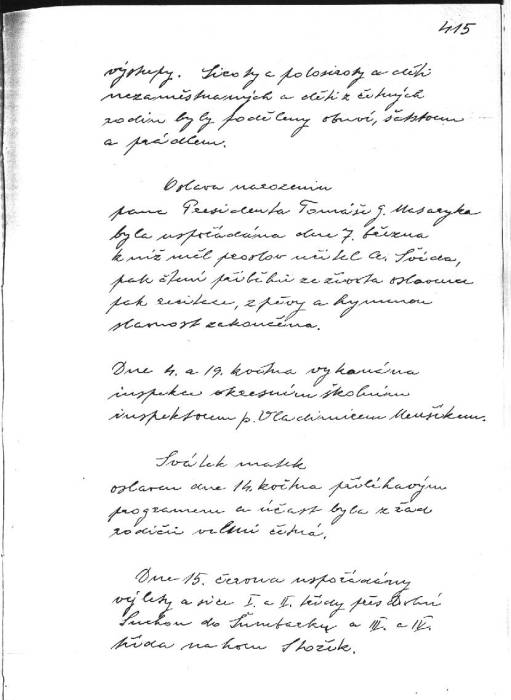 415
výstupy. Siroty a polosiroty a děti
nezaměstnaných a děti z četných
rodin byly poděleny obuví, šatstvem
a prádlem.
Oslava narozenin
pana Presidenta Tomáše G. Masaryka
byla uspořádána dne 7. března
k níž měl proslov učitel A. Švéda,
pak čtení příběhů ze života oslavence
pak recitace, zpěvy a hymnou
slavnost zakončena.
Dne 4. a 19. května vykonána
inspekce okresním školním
inspektorem p. Vladimírem Menšíkem.
Svátek matek
oslaven dne 14. května přiléhavým
programem a účast byla z řad
rodičů velmi četná.
Dne 15. června uspořádány
výlety a sice I. a II. třídy přes Dolní
Suchou do Šumbarku a III. a IV.
třída na horu Stožek.